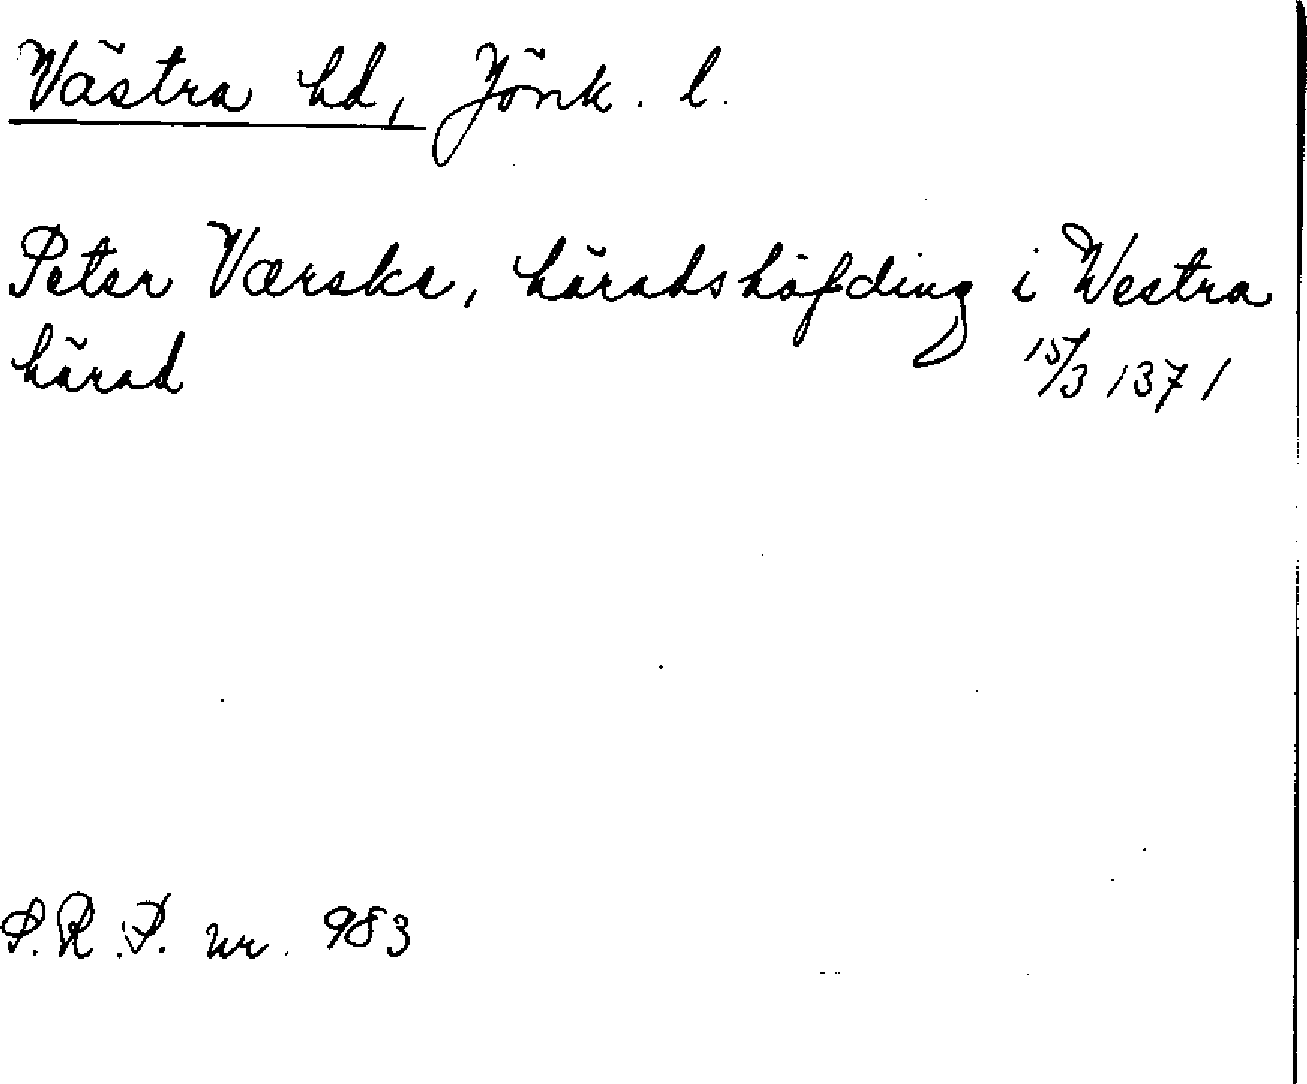 Västra hd, Jönk. l.
Peter Værske, häradshöfding i Westra
härad 15/3 1371
P.R.P. nr. 983